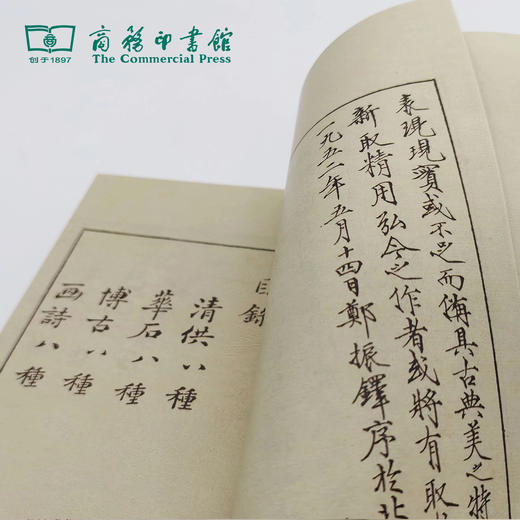 創于1897
商務印書館
The Commercial Press
表現現實或不足而備具古典美之特
新取精用弘今之作者或將有取
一九五二年五月十四日鄭振鐸序於北
目錄
清供八種
華石八種
博古八種
画詩八種